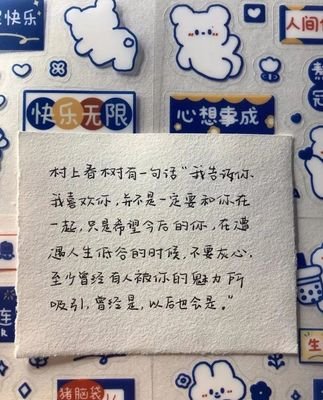 快乐
人间
快乐无限
心想事成
村上春树有一句话“我告诉你
我喜欢你，并不是一定要和你在
一起，只是希望今后的你，在遭
遇人生低谷的时候，不要灰心，
至少曾经有人被你的魅力所
吸引，曾经是，以后也会是。”
连
生
猪脑袋